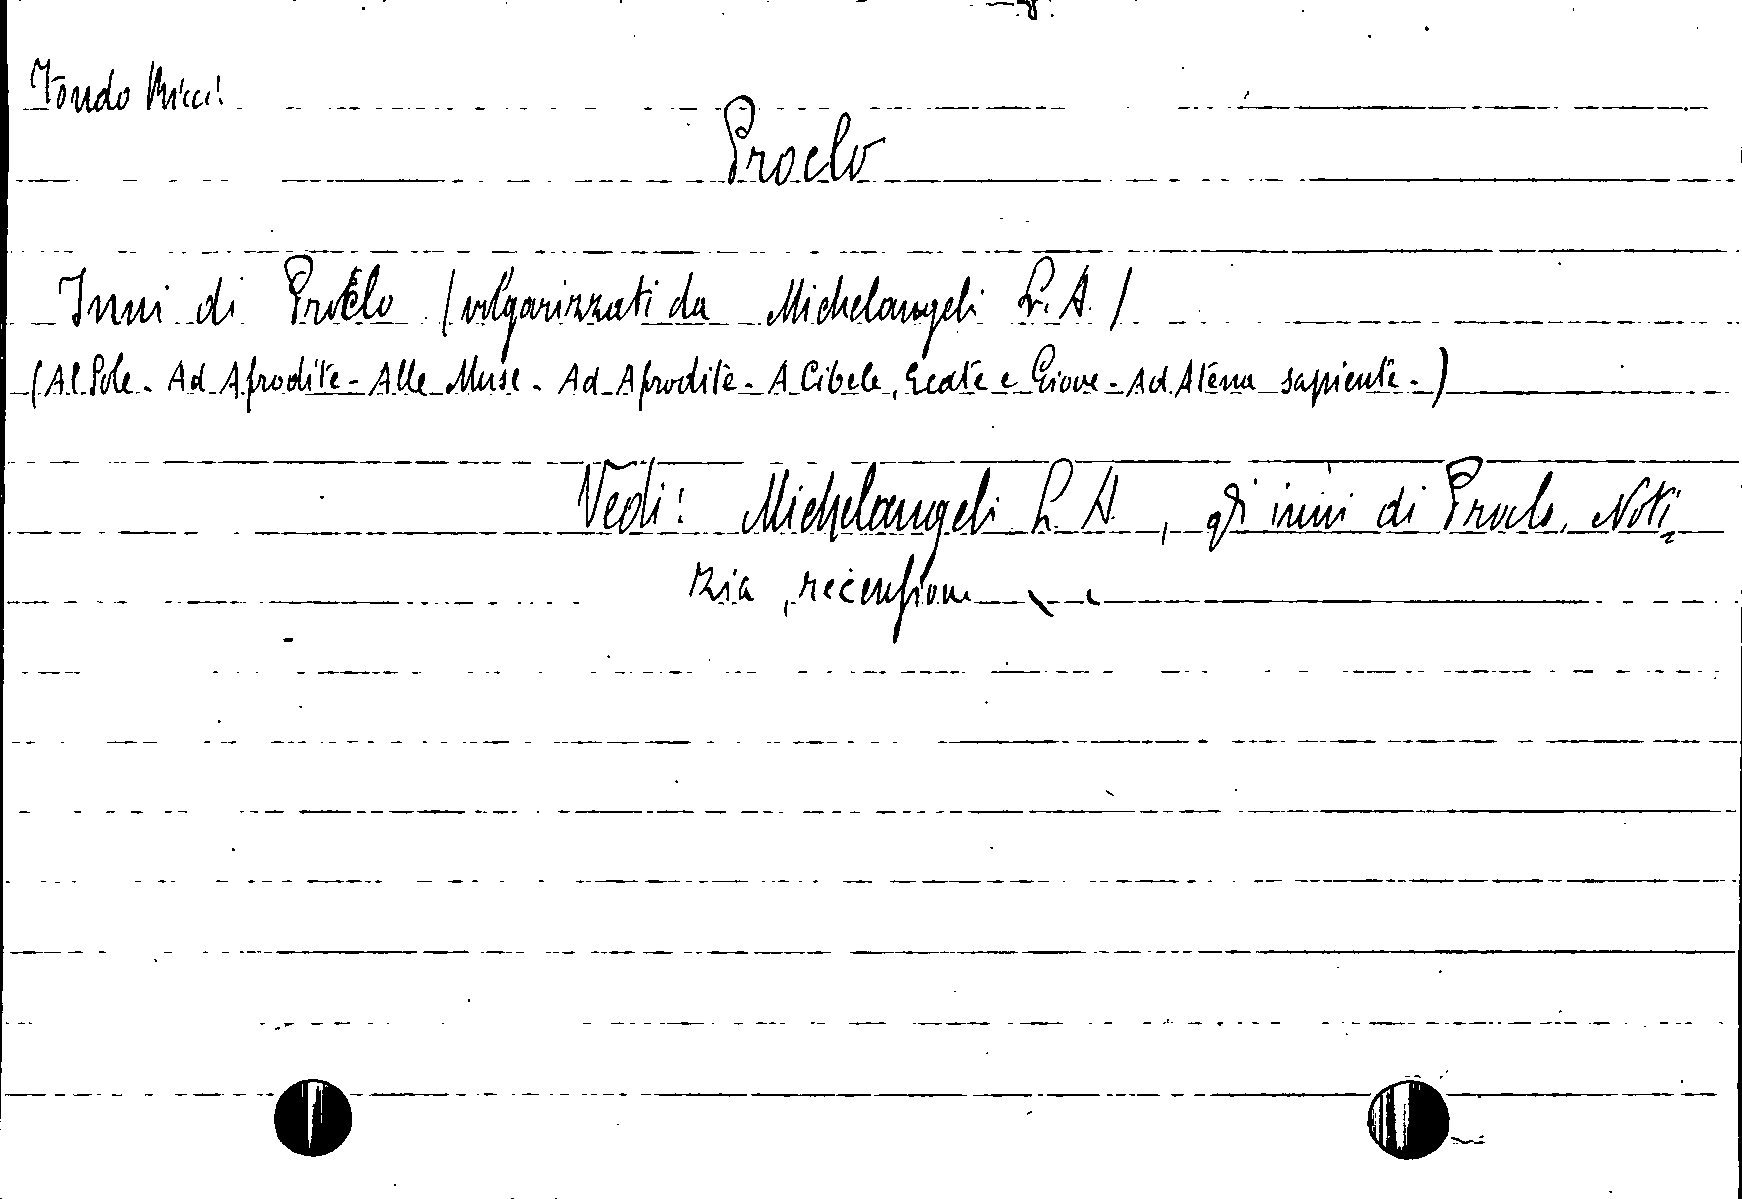 Fondo Ricci
Proclo
Inni di Proclo (volgarizzati da Michelangeli L. A.)
(Al Sole - Ad Afrodite - Alle Muse - Ad Afrodite - A Cibele, Ecate e Giove - Ad Atena sapiente -)
Vedi: Michelangeli L. A., gli inni di Proclo. Noti=
zia, recensione